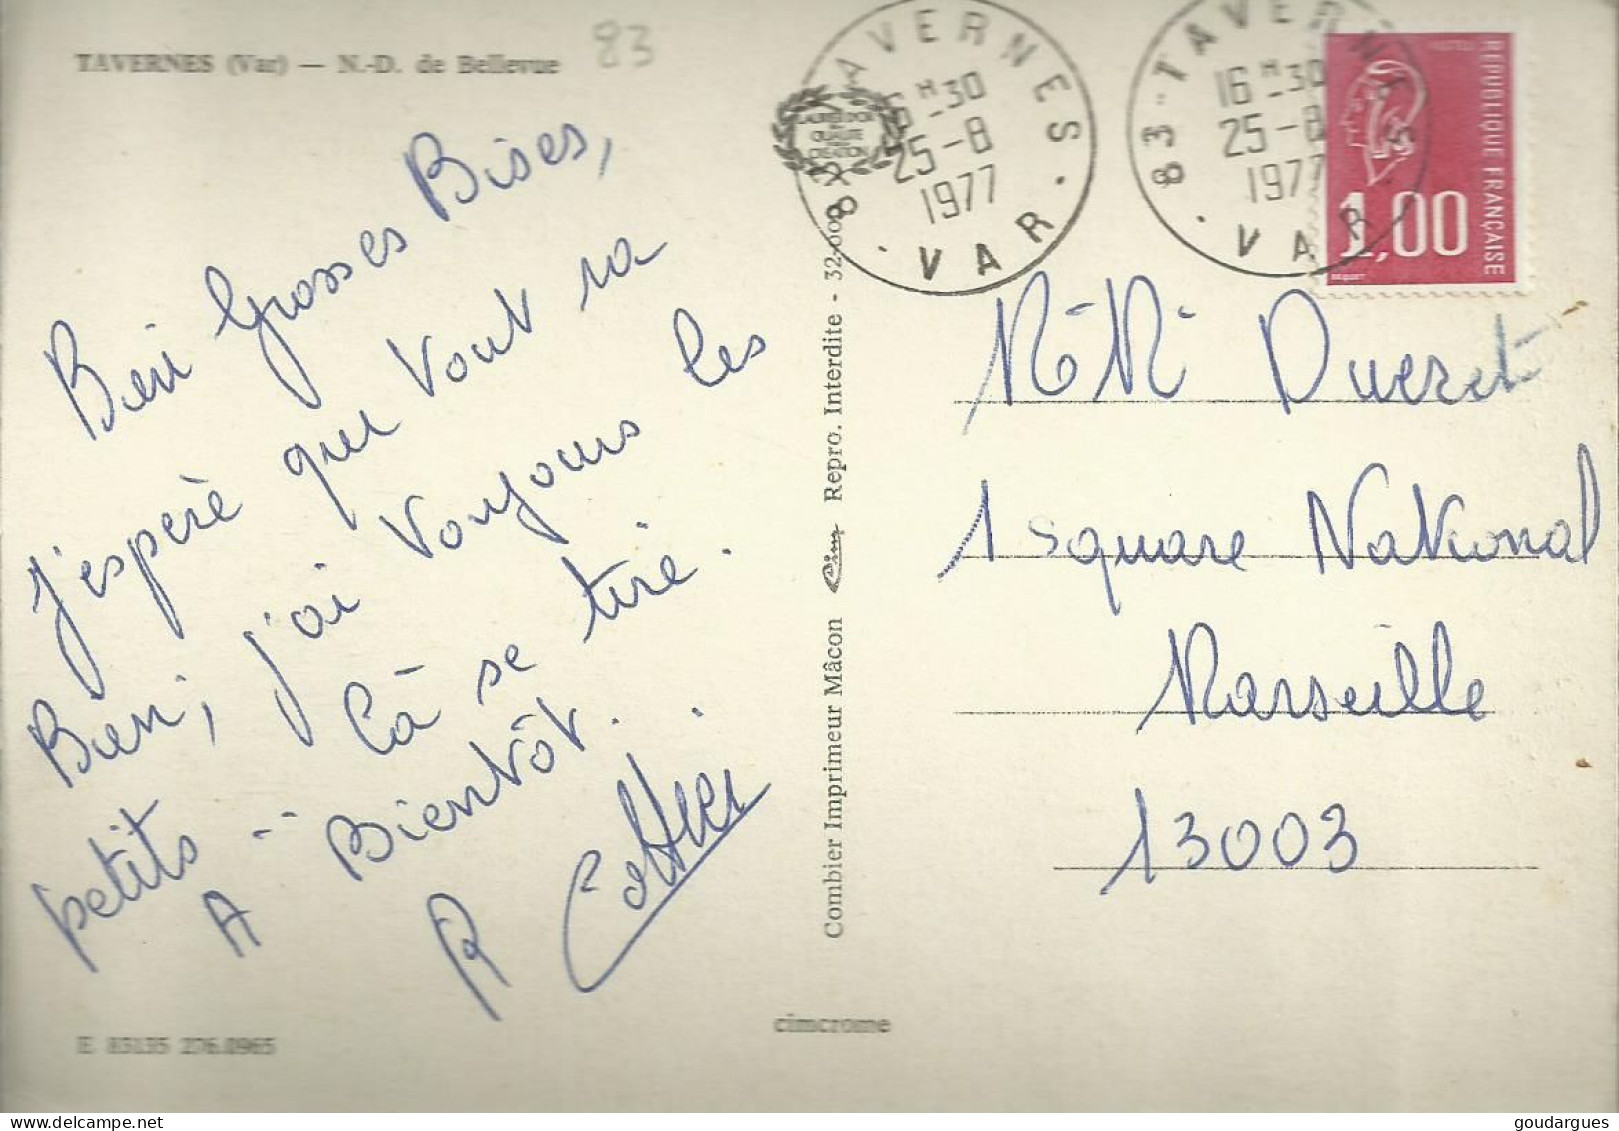 TAVERNES (Var) — N.-D. de Bellevue
83
Bien Grosses Bises,
j'espère que tout va
Bien, j'ai toujours les
petits -- Cà se tire.
A Bientôt.
R
E 83135 276.0965
cimcrome
Combier Imprimeur Mâcon Cim Repro. Interdite - 32.008
LAURIER D'OR
QUALITE
CREATION
83 TAVERNES
16 H -30
25-8
1977
VAR
83-TAVERNES
16 H -30
25-8
1977
VAR
REPUBLIQUE FRANÇAISE
1,00
BEQUET
Ducret
1 square National
Marseille
13003
goudargues @ delcampe.net